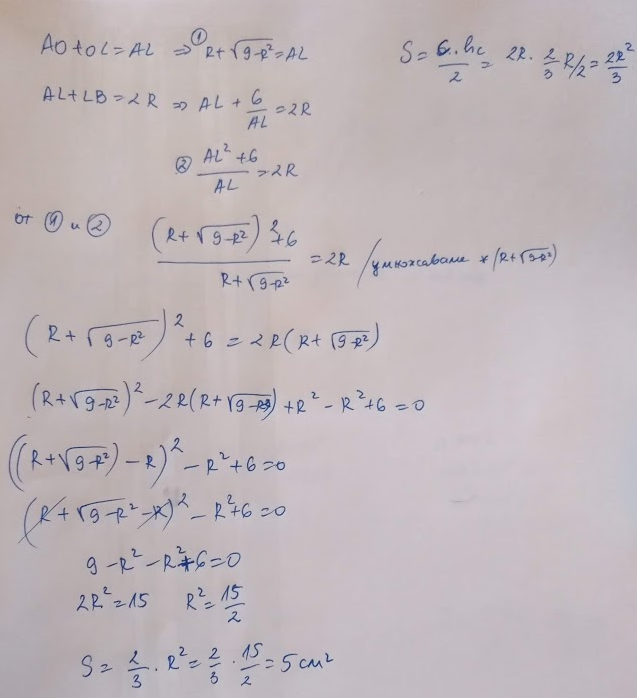 AO + OL = AL ⇒ ① R + √(9-R²) = AL
S = c·hc/2 = 2R · 2/3 R/2 = 2R²/3
AL + LB = 2R ⇒ AL + 6/AL = 2R
② (AL² + 6)/AL = 2R
от ① и ② ((R + √(9-R²))² + 6)/(R + √(9-R²)) = 2R / умножаваме * (R + √(9-R²))
(R + √(9-R²))² + 6 = 2R(R + √(9-R²))
(R + √(9-R²))² - 2R(R + √(9-R²)) + R² - R² + 6 = 0
((R + √(9-R²)) - R)² - R² + 6 = 0
(R + √(9-R²) - R)² - R² + 6 = 0
9 - R² - R² + 6 = 0
2R² = 15 R² = 15/2
S = 2/3 · R² = 2/3 · 15/2 = 5 см²